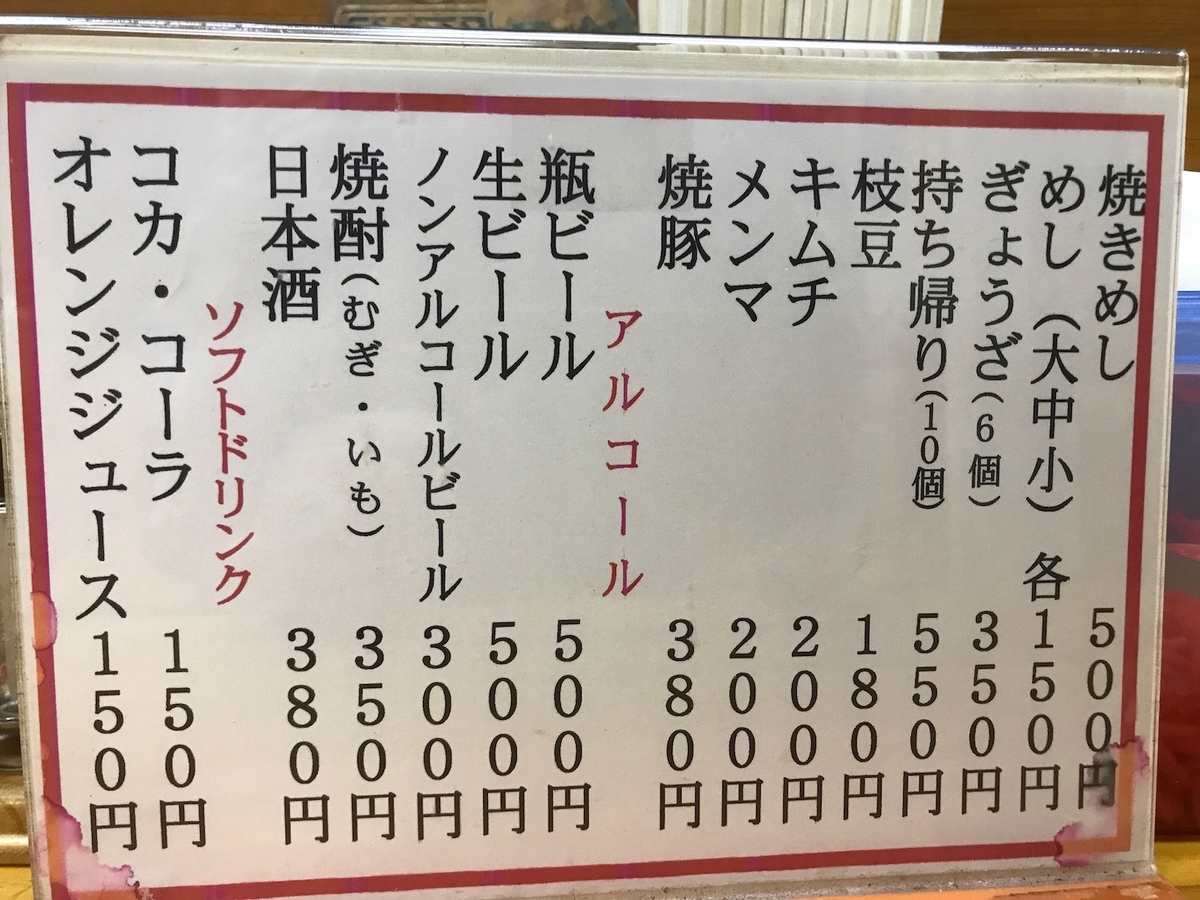 焼きめし 500円
めし(大中小) 各150円
ぎょうざ(6個) 350円
持ち帰り(10個) 550円
枝豆 180円
キムチ 200円
メンマ 200円
焼豚 380円
アルコール
瓶ビール 500円
生ビール 500円
ノンアルコールビール 300円
焼酎(むぎ・いも) 350円
日本酒 380円
ソフトドリンク
コカ・コーラ 150円
オレンジジュース 150円